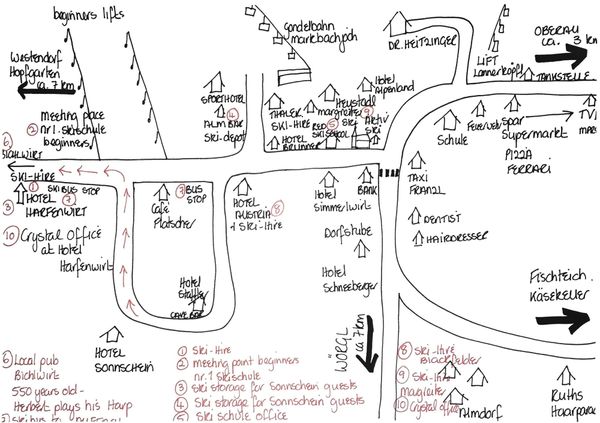 beginners lifts
Gondelbahn
Markbachjoch
DR. HEITZINGER
OBERAU
ca. 3 km
LIFT
Lannerköpfl
TANKSTELLE
Westendorf
Hopfgarten
ca. 7 km
Hotel
Alpenland
SPORTHOTEL
4
ALM BAR
Ski-depot
THALER
SKI-HIRE
HOTEL
BRUNNER
RED
SKISCHOOL
5
Heustadl
margreiter
SKI
9
Aktiv
Ski
2 meeting place
nr. 1 - skischule
beginners
Schule
FEUERWEHR
Spar
Supermarkt
PIZZA
FERRARI
6
SKI-HIRE
1 SKIBUS STOP
3 HOTEL 7
HARFENWIRT
7 BUS
STOP
Cafe
Platscher
HOTEL
AUSTRIA 8
+ Ski-Hire
Hotel
Simmerlwirt
BANK
TAXI
FRANZL
DENTIST
HAIRDRESSER
10 Crystal Office
at Hotel
Harfenwirt
Dorfstube
Hotel
Schneeberger
Hotel
CAVE BAR
Fischteich
Käsekeller
WÖRGL
ca 7km
HOTEL
SONNSCHEIN
6 Local pub
Bichlwirt
550 years old -
Herbert plays his Harp
1 Ski-Hire
2 meeting point beginners
nr. 1 skischule
3 ski storage for Sonnschein guests
4 Ski storage for Sonnschein guests
5 Ski school office
8 Ski-Hire
Blachfelder
9 Ski-Hire
10 Crystal office
Almdorf
Ruths
Haarpara